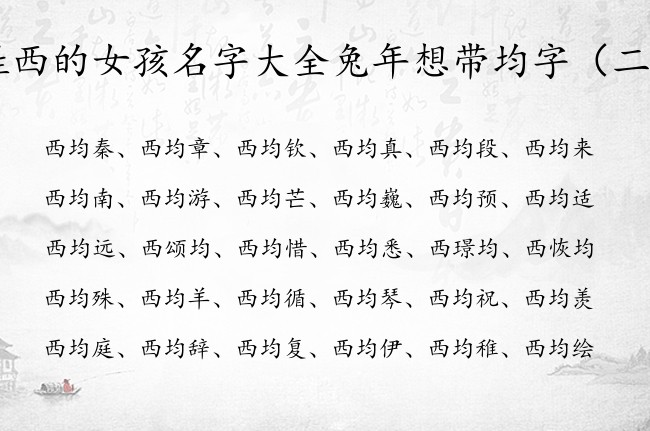 姓西的女孩名字大全兔年想带均字（二
西均秦、西均章、西均钦、西均真、西均段、西均来
西均南、西均游、西均芒、西均巍、西均预、西均适
西均远、西颂均、西均惜、西均悉、西璟均、西恢均
西均殊、西均羊、西均循、西均琴、西均祝、西均羡
西均庭、西均辞、西均复、西均伊、西均稚、西均绘